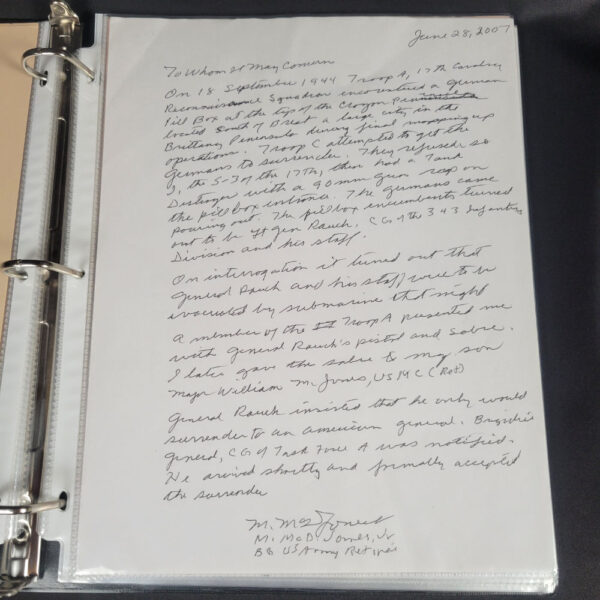 June 28, 2007
To Whom It May Concern
On 18 September 1944 Troop A, 17th Cavalry
Reconnaissance Squadron encountered a German
Pill Box at the top of the Crozon Peninsula
located South of Brest a large city in the
Brittany Peninsula during final mopping up
operations. Troop C attempted to get the
Germans to surrender. They refused, so
I, the S-3 of the 17th, then had a Tank
Destroyer with a 90mm gun rap on
the pillbox entrance. The germans came
pouring out. The pillbox encumbants turned
out to be Lt Gen Rauch, CG of the 343 Infantry
Division and his staff.
On interrogation it turned out that
General Rauch and his staff were to be
evacuated by submarine that night
A member of the Troop A presented me
with General Rauch's pistol and Sabre.
I later gave the sabre to my son
Major William M. Jones, USMC (Ret)
General Rauch insisted that he only would
surrender to an american general. Brigidier
General, CG of Task Force A was notified.
He arrived shortly and formally accepted
the surrender
M. McD Jones Jr
M. McD. Jones, Jr
BG US Army Retired